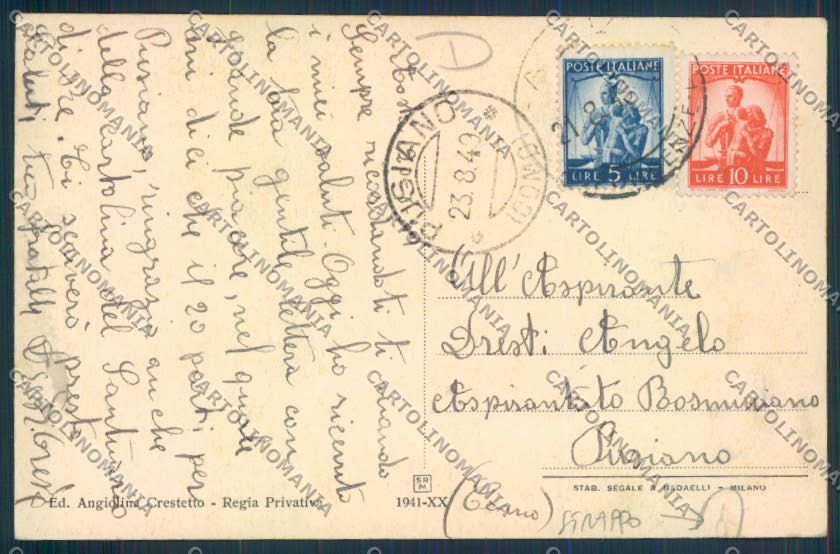 Sempre ricordandoti ti mando
i miei saluti. Oggi ho ricevuto
la tua gentile lettera con
grande piacere, nel quale
mi dici che il 20 parti per
Pusiano, ringrazio anche
della cartolina del Santuario
di Re. Ti scriverò presto
Saluti tuo fratello
D
PUSIANO
(COMO)
23.8.49
POSTE ITALIANE
LIRE 5 LIRE
POSTE ITALIANE
LIRE 10 LIRE
All'Aspirante
Oresti Angelo
Aspirantato Bosminiano
Pusiano
(Como)
STRAPPO
Ed. Angiolina Crestetto - Regia Privativa
SR
M
1941-XX
STAB. SEGALE & RADAELLI - MILANO
CARTOLINOMANIA